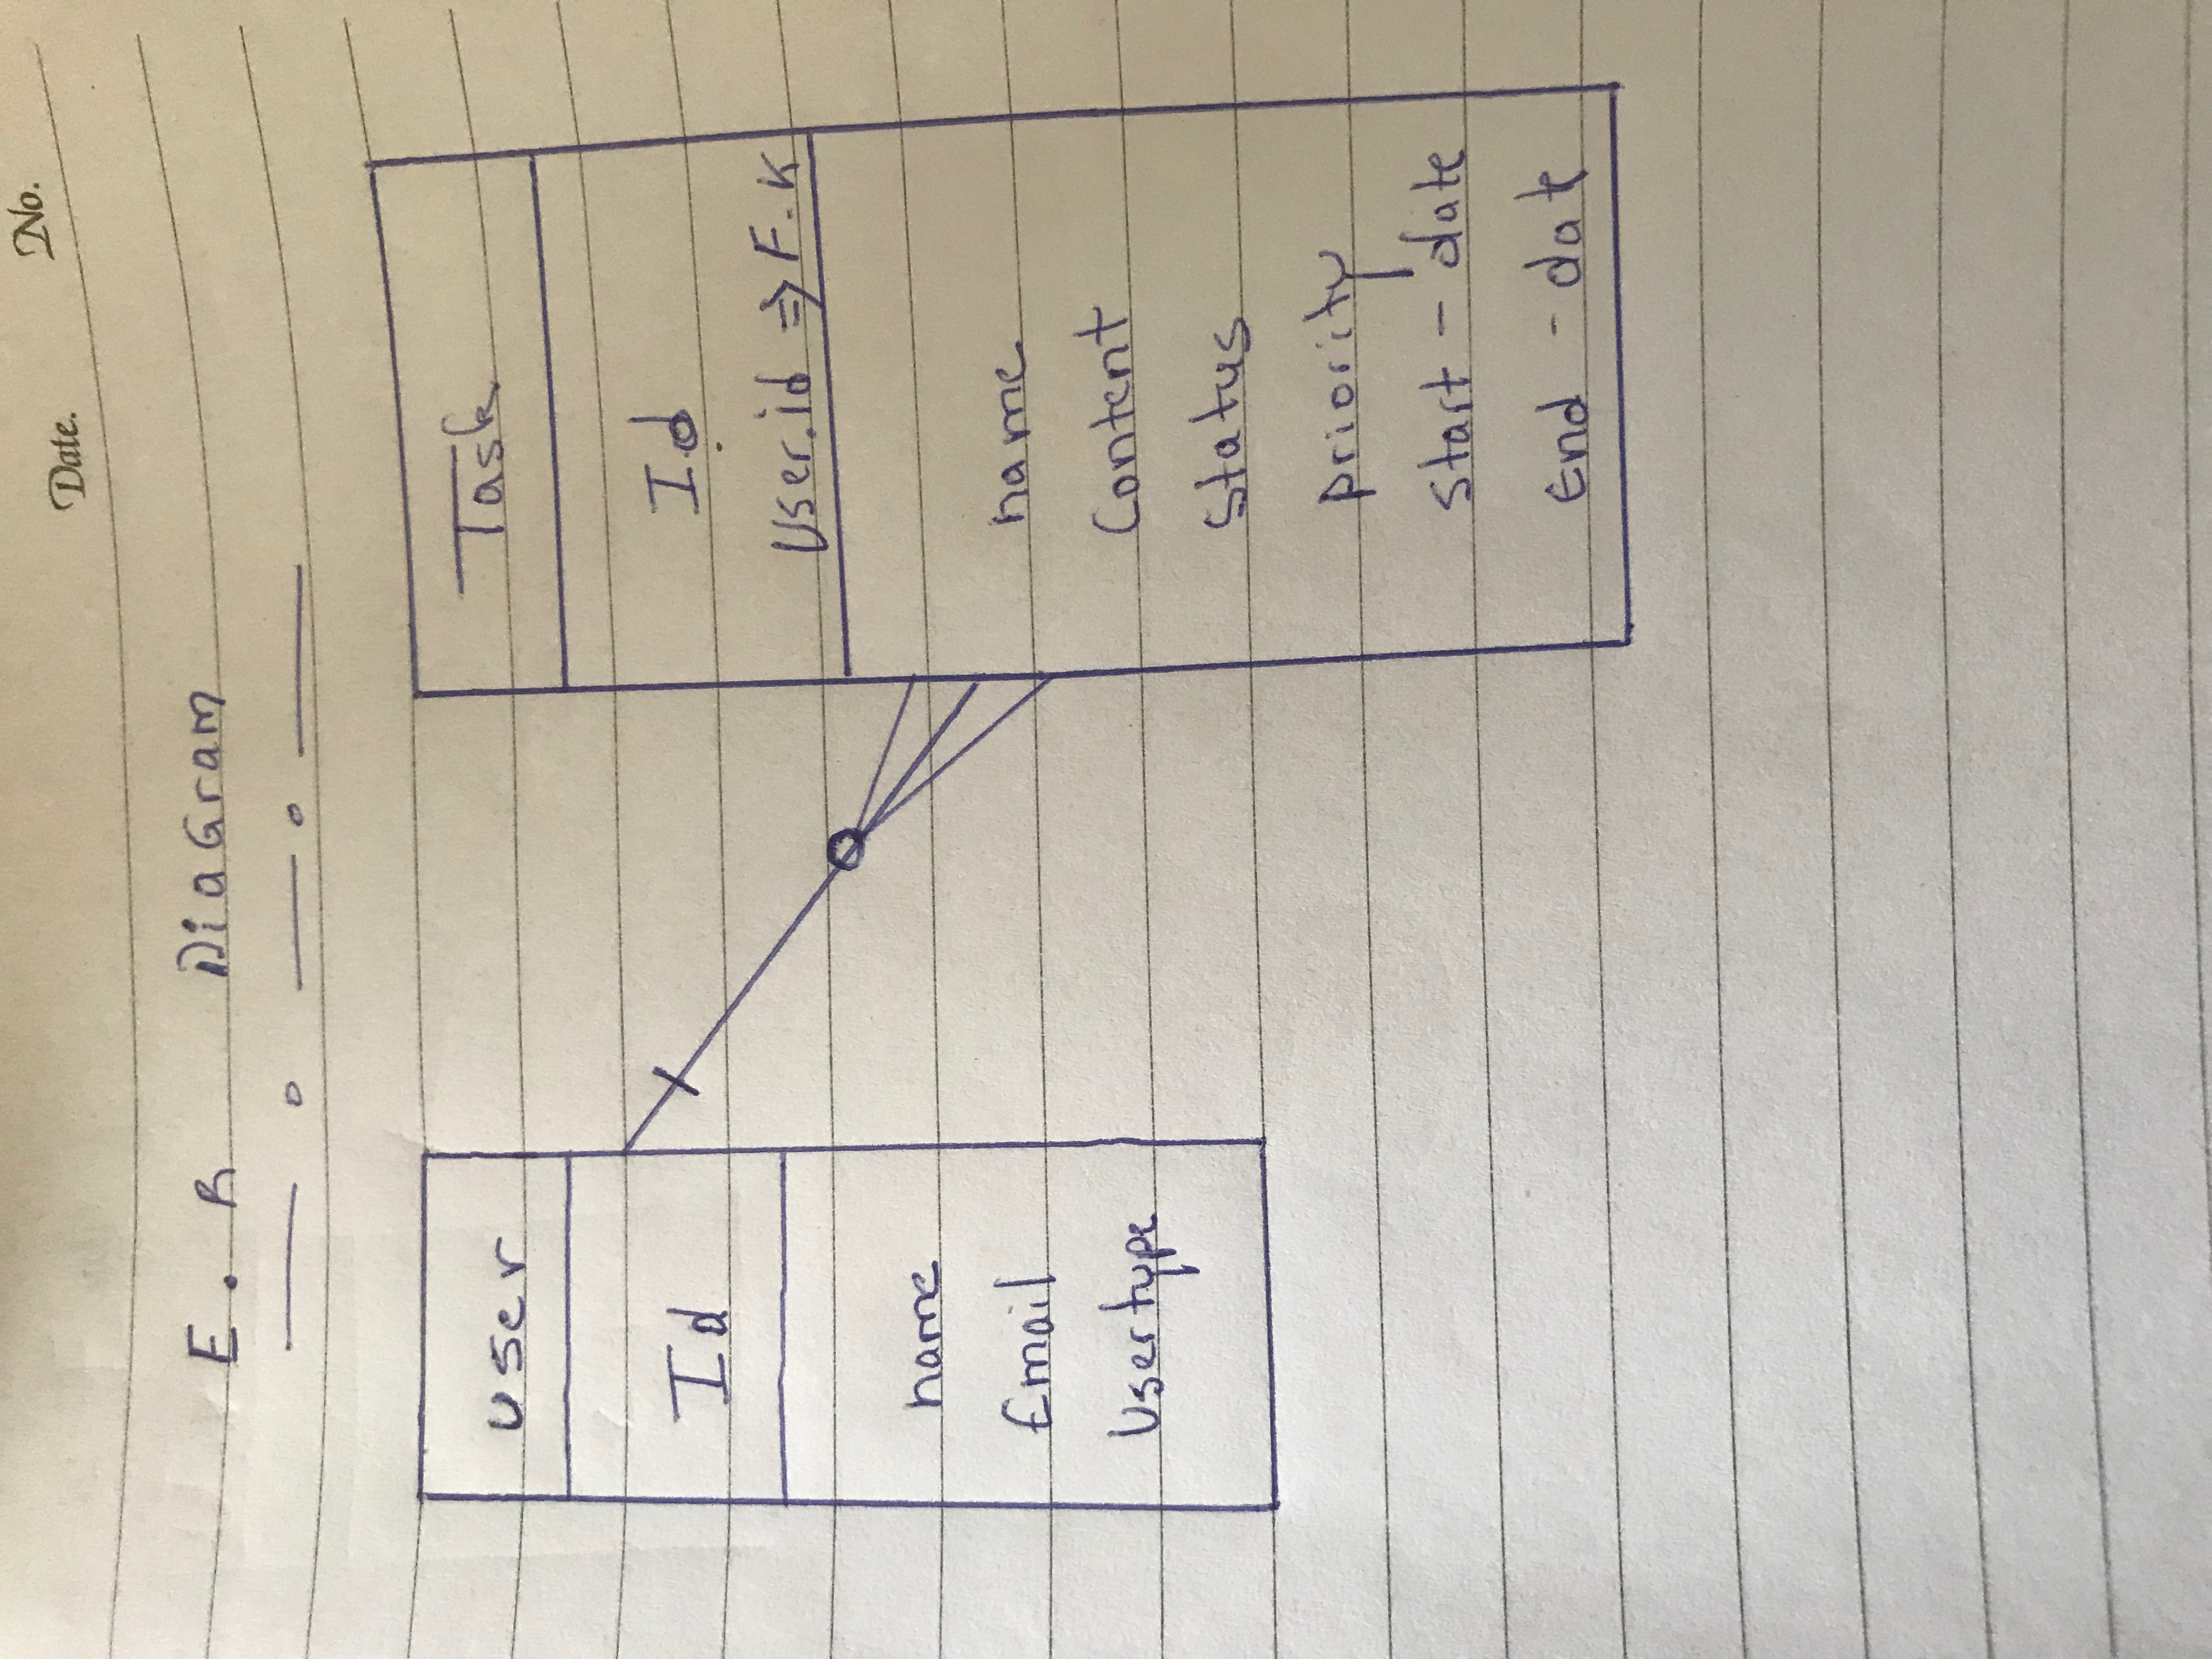 No.
Date.
E. R DiaGram
user
Id
name
Email
Usertype
Task
Id
User.id ⇒ F.K
name
Content
Status
priority
Start - date
End - date